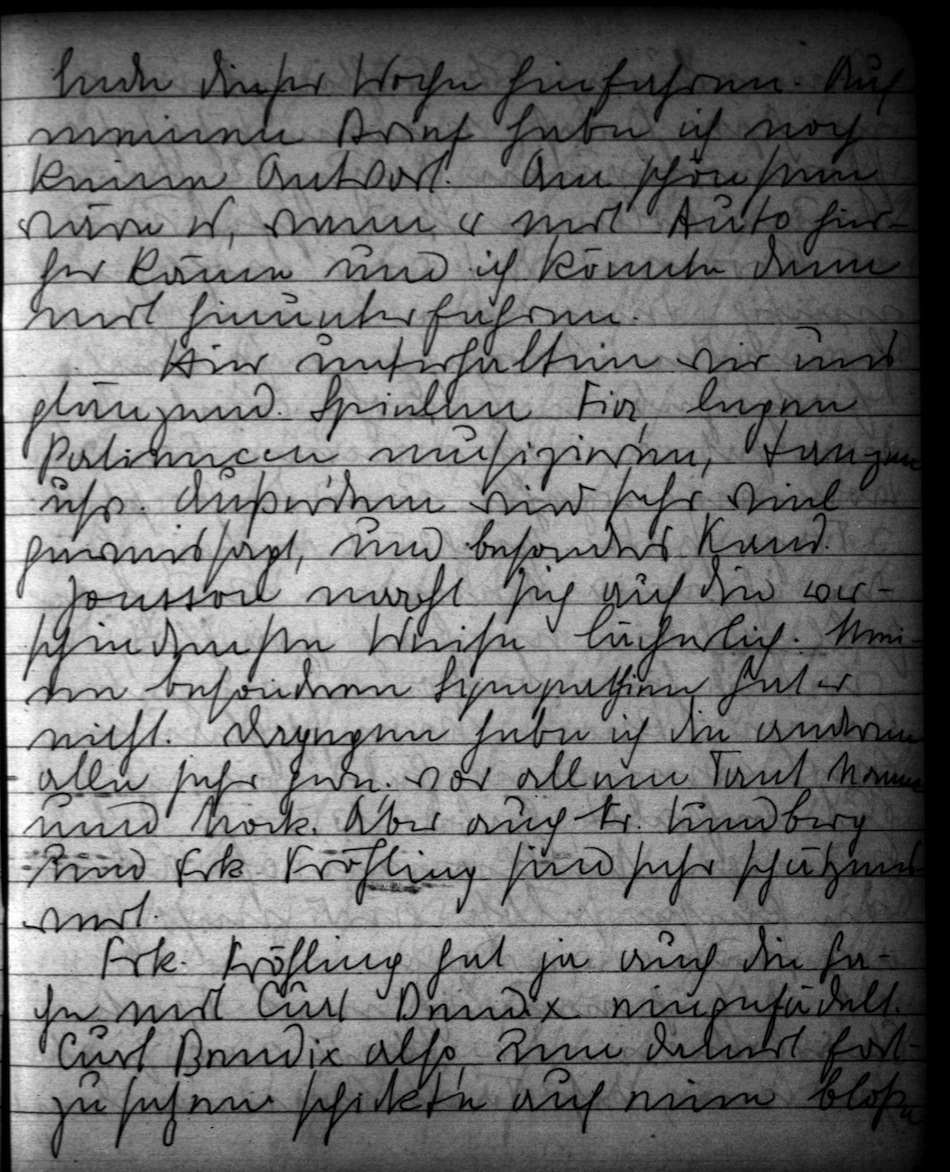 Ende dieser Woche hinfahren. Auf
meinen Brief habe ich noch
keine Antwort. Am schönsten
wäre es, wenn er mit Auto hier-
her käme und ich könnte dann
mit hinunterfahren.
Hier unterhalten wir uns
glänzend. Spielen Fia, legen
Patiencen musizieren, tanzen
usw. Außerdem wird sehr viel
geweissagt, und besonders Kand.
Jonsson macht sich auf die ver-
schiedensten Weise lächerlich. Mei-
ne besonderen Sympathien hat er
nicht. Dagegen habe ich die anderen
alle sehr gern. vor allem Tant
und Aber auch Fr. Lundberg
und Frk Fröhling sind sehr schätzens
wert.
Frk. Fröhling hat ja auch die Sa-
che mit Curt Bendix eingefädelt.
Curt Bendix also, um damit fort-
zusetzen schickte auf eine bloße